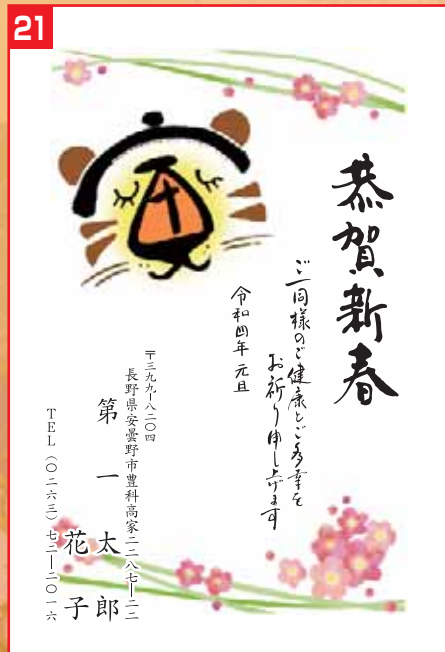 21
恭賀新春
ご一同様のご健康とご多幸を
お祈り申し上げます
令和四年 元旦
寅
〒三九九ー八二〇四
長野県安曇野市豊科高家二二八七ー二二
第一 太郎
花子
TEL(〇二六三)七二ー二〇一六